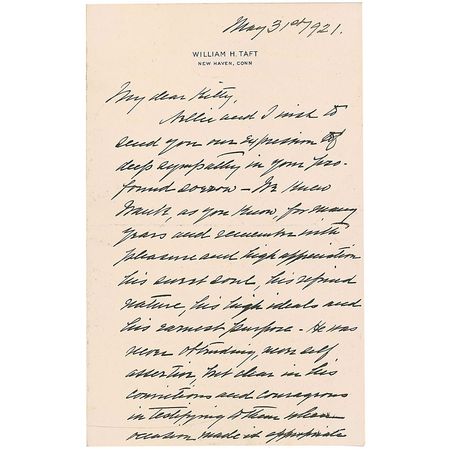 May 31st 1921.
WILLIAM H. TAFT
NEW HAVEN, CONN
My dear Kitty,
Nellie and I wish to
send you our expression of
deep sympathy in your pro-
found sorrow - We knew
as you know, for many
years and remember with
pleasure and high appreciation
his sweet soul, his refined
nature, his high ideals and
his earnest purpose - He was
never obtruding, never self
assertive, but clear in his
convictions and courageous
in testifying to them when
occasion made it appropriate